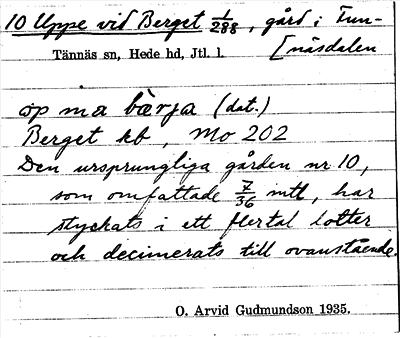 10 Uppe vid Berget 1/288, gård i Fun-
[näsdalen
Tännäs sn, Hede hd, Jtl. l.
öp ma bærja (dat.)
Berget kb, Mo 202
Den ursprungliga gården nr 10,
som omfattade 7/36 mtl, har
styckats i ett flertal lotter
och decimerats till ovanstående.
O. Arvid Gudmundson 1935.